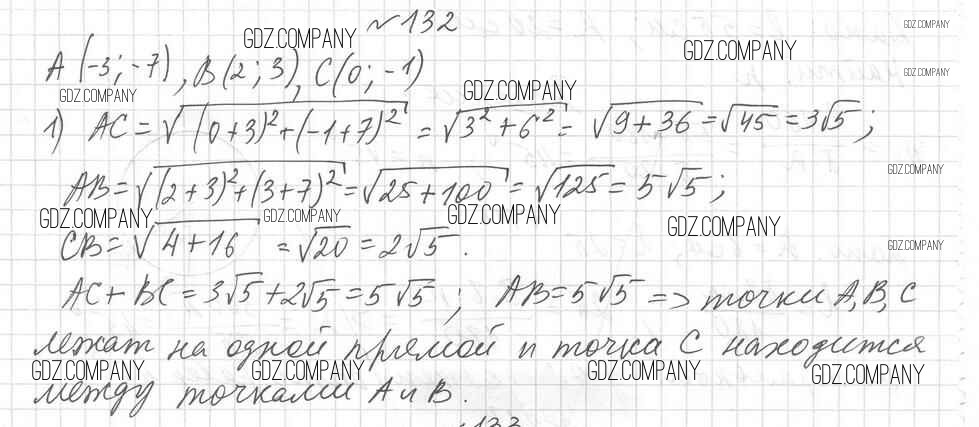 №132
GDZ.COMPANY GDZ.COMPANY GDZ.COMPANY
A (-3; -7), B(2; 3), C(0; -1)
GDZ.COMPANY GDZ.COMPANY GDZ.COMPANY
1) AC = √((0+3)²+(-1+7)²) = √(3²+6²) = √(9+36) = √45 = 3√5;
AB = √((2+3)²+(3+7)²) = √(25+100) = √125 = 5√5;
GDZ.COMPANY
GDZ.COMPANY GDZ.COMPANY GDZ.COMPANY GDZ.COMPANY
CB = √(4+16) = √20 = 2√5.
GDZ.COMPANY
AC + BC = 3√5 + 2√5 = 5√5; AB = 5√5 => точки A, B, C
лежат на одной прямой и точка C находится
GDZ.COMPANY GDZ.COMPANY GDZ.COMPANY GDZ.COMPANY
между точками A и B.